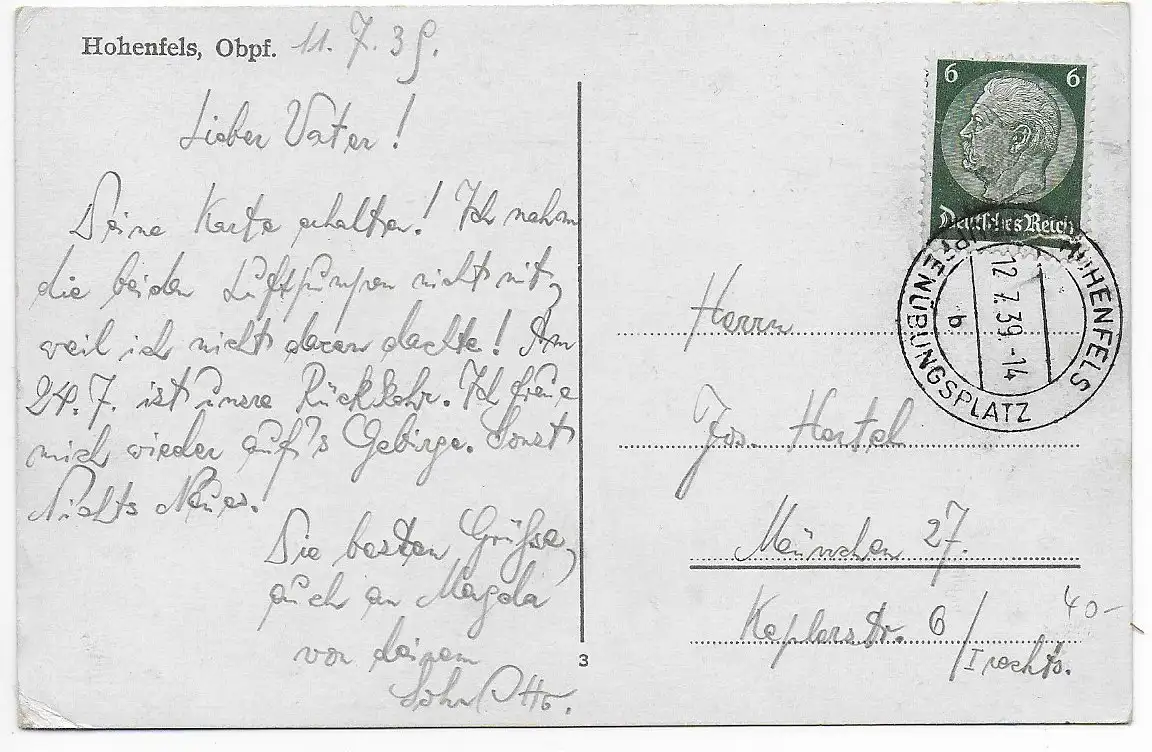 Hohenfels, Obpf. 11.7.39.
Lieber Vater!
Deine Karte erhalten! Ich nahm
die beiden nicht mit,
weil ich nicht daran dachte! Am
24.7. ist unsere Rückkehr. Ich freue
mich wieder auf's Gebirge. Sonst
Nichts Neues.
Die besten Grüße,
auch an Magda
von deinem
Sohn Otto.
3
6 6
Deutsches Reich
HOHENFELS
TRUPPENÜBUNGSPLATZ
12.7.39.-14
b
Herrn
Jos. Hertel
München 27.
Keplerstr. 6/
I rechts.
40-